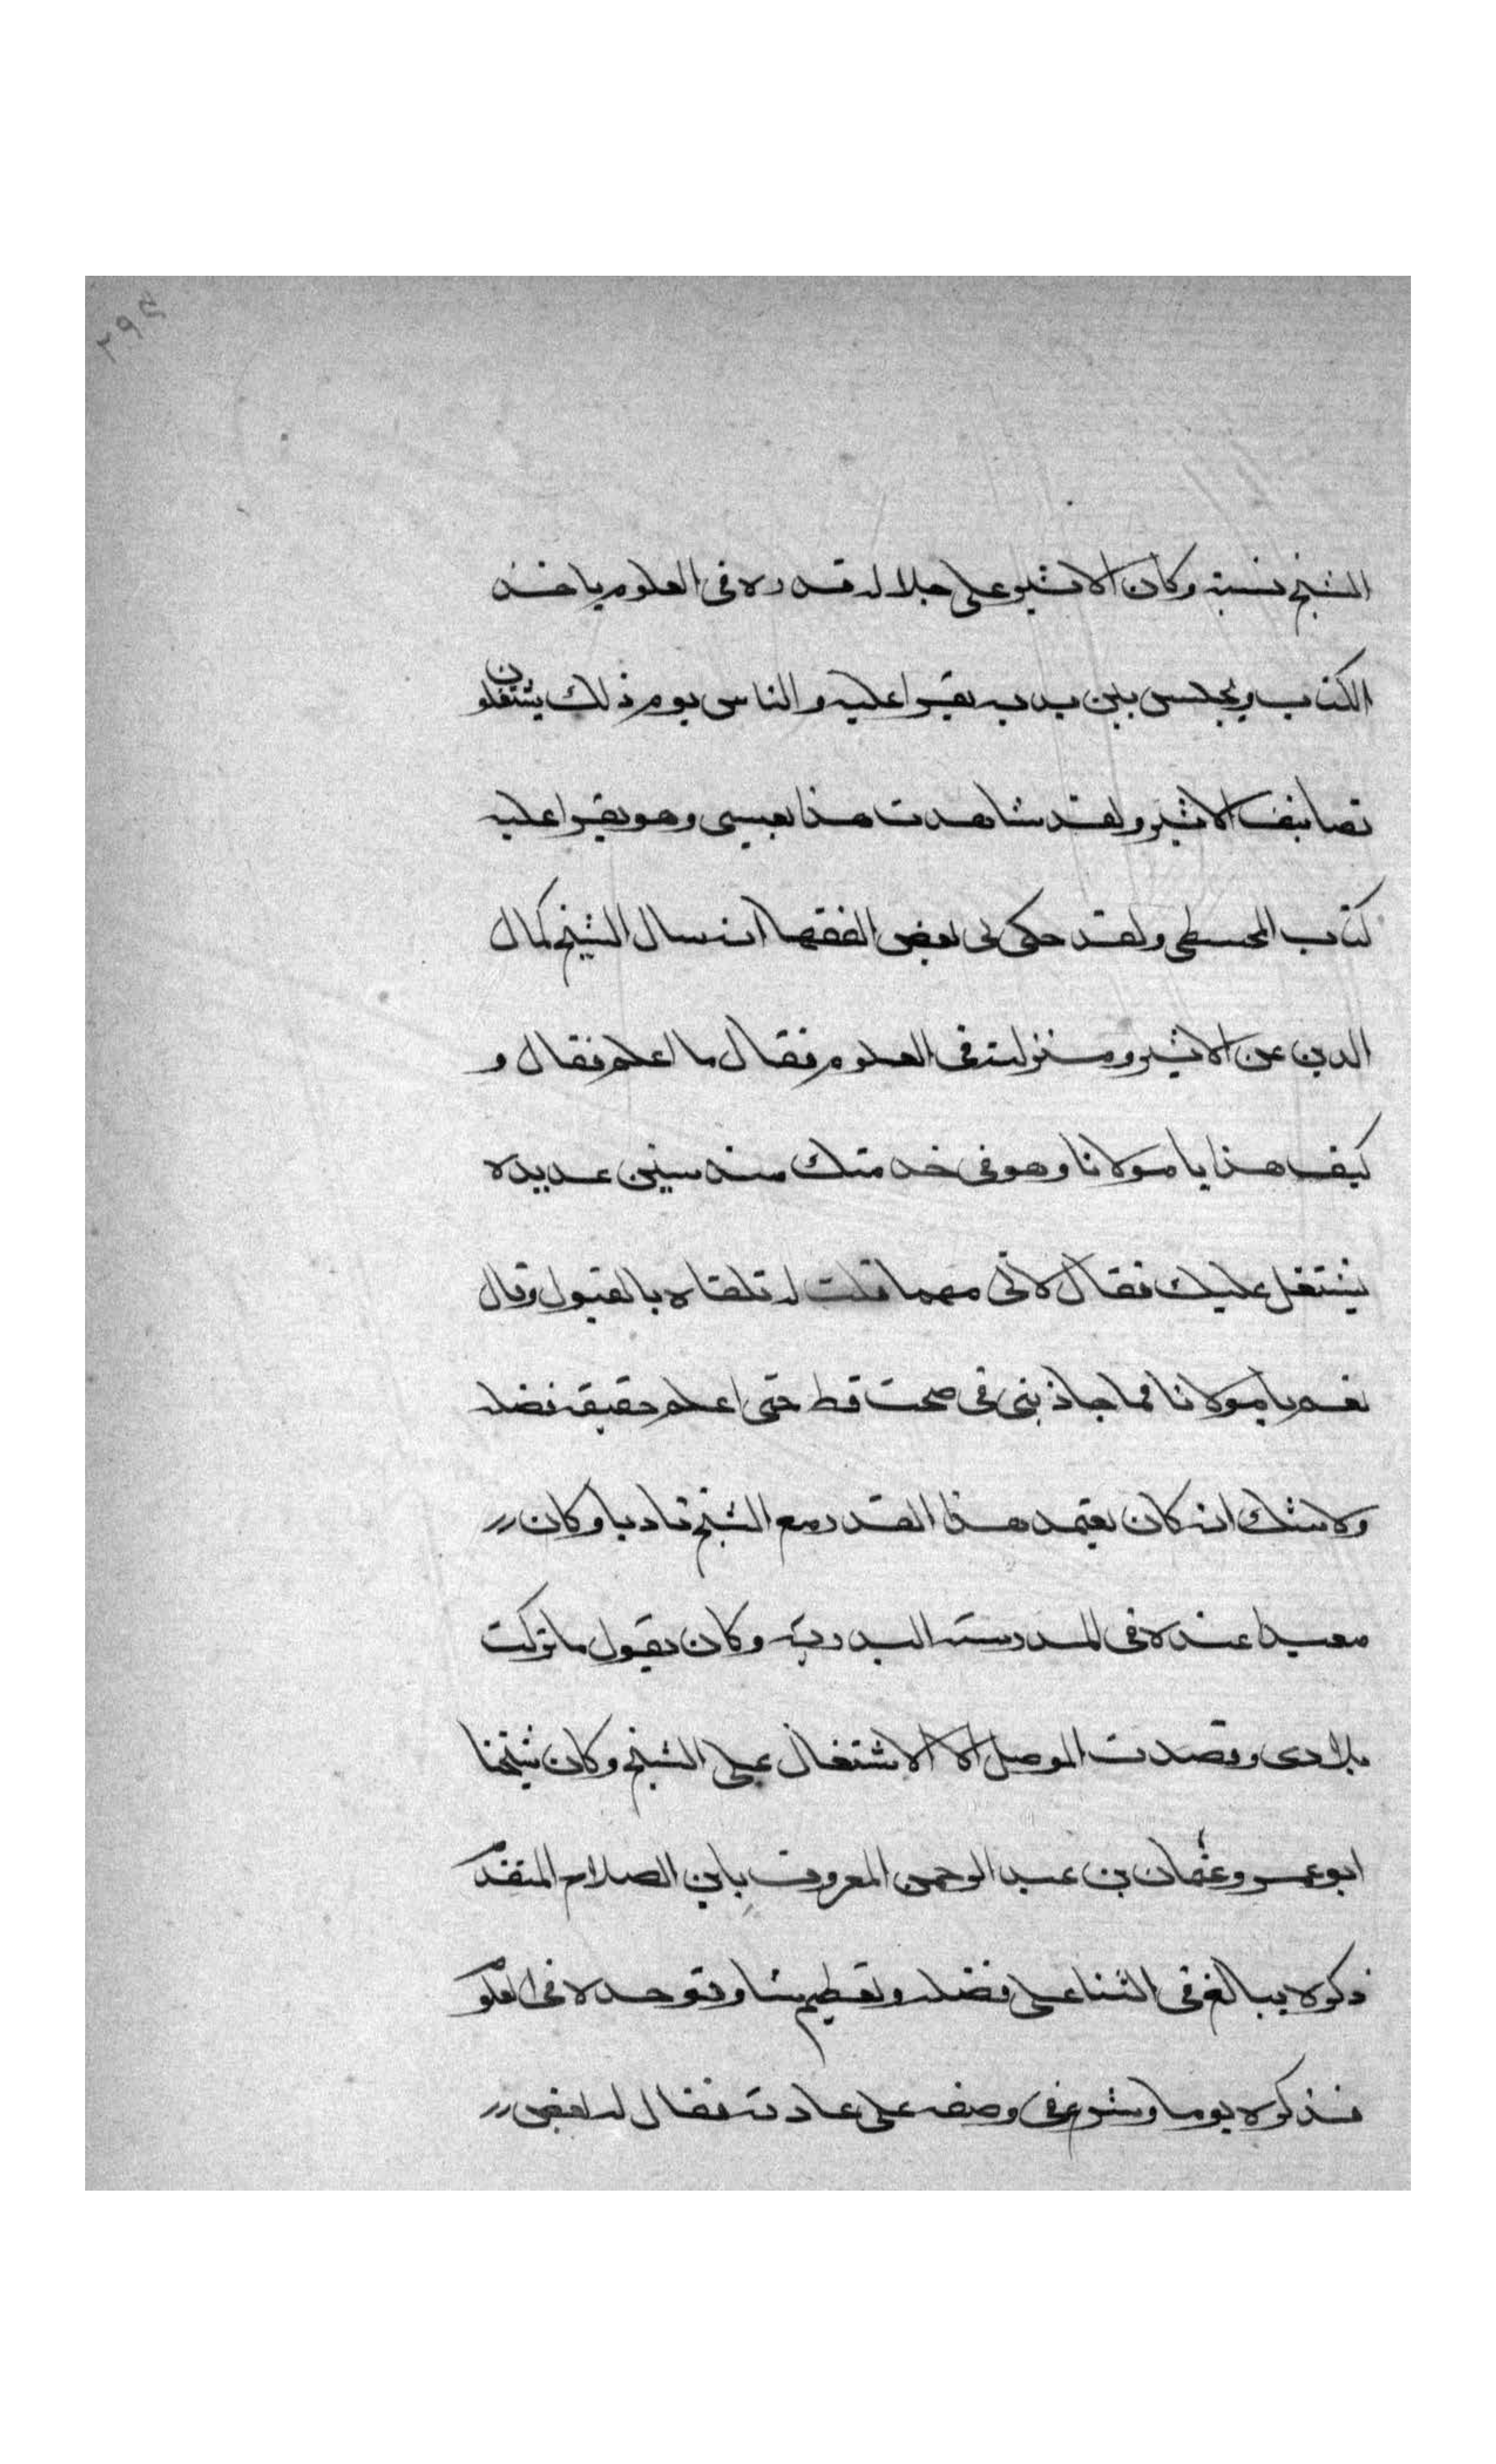 ٢٩٤
الشيخ نسبة وكان الاثير على جلالة قدره فى العلوم ياخذ
الكتاب ويجلس بين يديه يقرا عليه والناس يوم ذلك يشتغلون
تصانيف الاثير ولقد شاهدت هذا بعينى وهو يقرا عليه
كتاب المجسطى ولقد حكى لى بعض الفقها انه سال الشيخ كمال
الدين عن الاثير ومنزلته فى العلوم فقال ما اعلم فقال و
كيف هذا يا مولانا وهو فى خدمتك منذ سنين عديده
يشتغل عليك فقال لانى مهما قلت له تلقاه بالقبول وقال
نعم يا مولانا فما جاذبنى فى مبحث قط حتى اعلم حقيقة فضله
ولا شك انه كان يعتمد هذا القدر مع الشيخ تادبا وكان
معيدا عنده فى المدرسة البدرية وكان يقول ما تركت
بلادى وقصدت الموصل الا الاشتغال على الشيخ وكان شيخنا
ابو عمرو عثمان بن عبد الرحمن المعروف بابن الصلاح المتقدم
ذكره يبالغ فى الثنا على فضله وتعظيم شا وتوحده فى العلو
فذكره يوما وشرع فى وصفه على عادته فقال له بعض